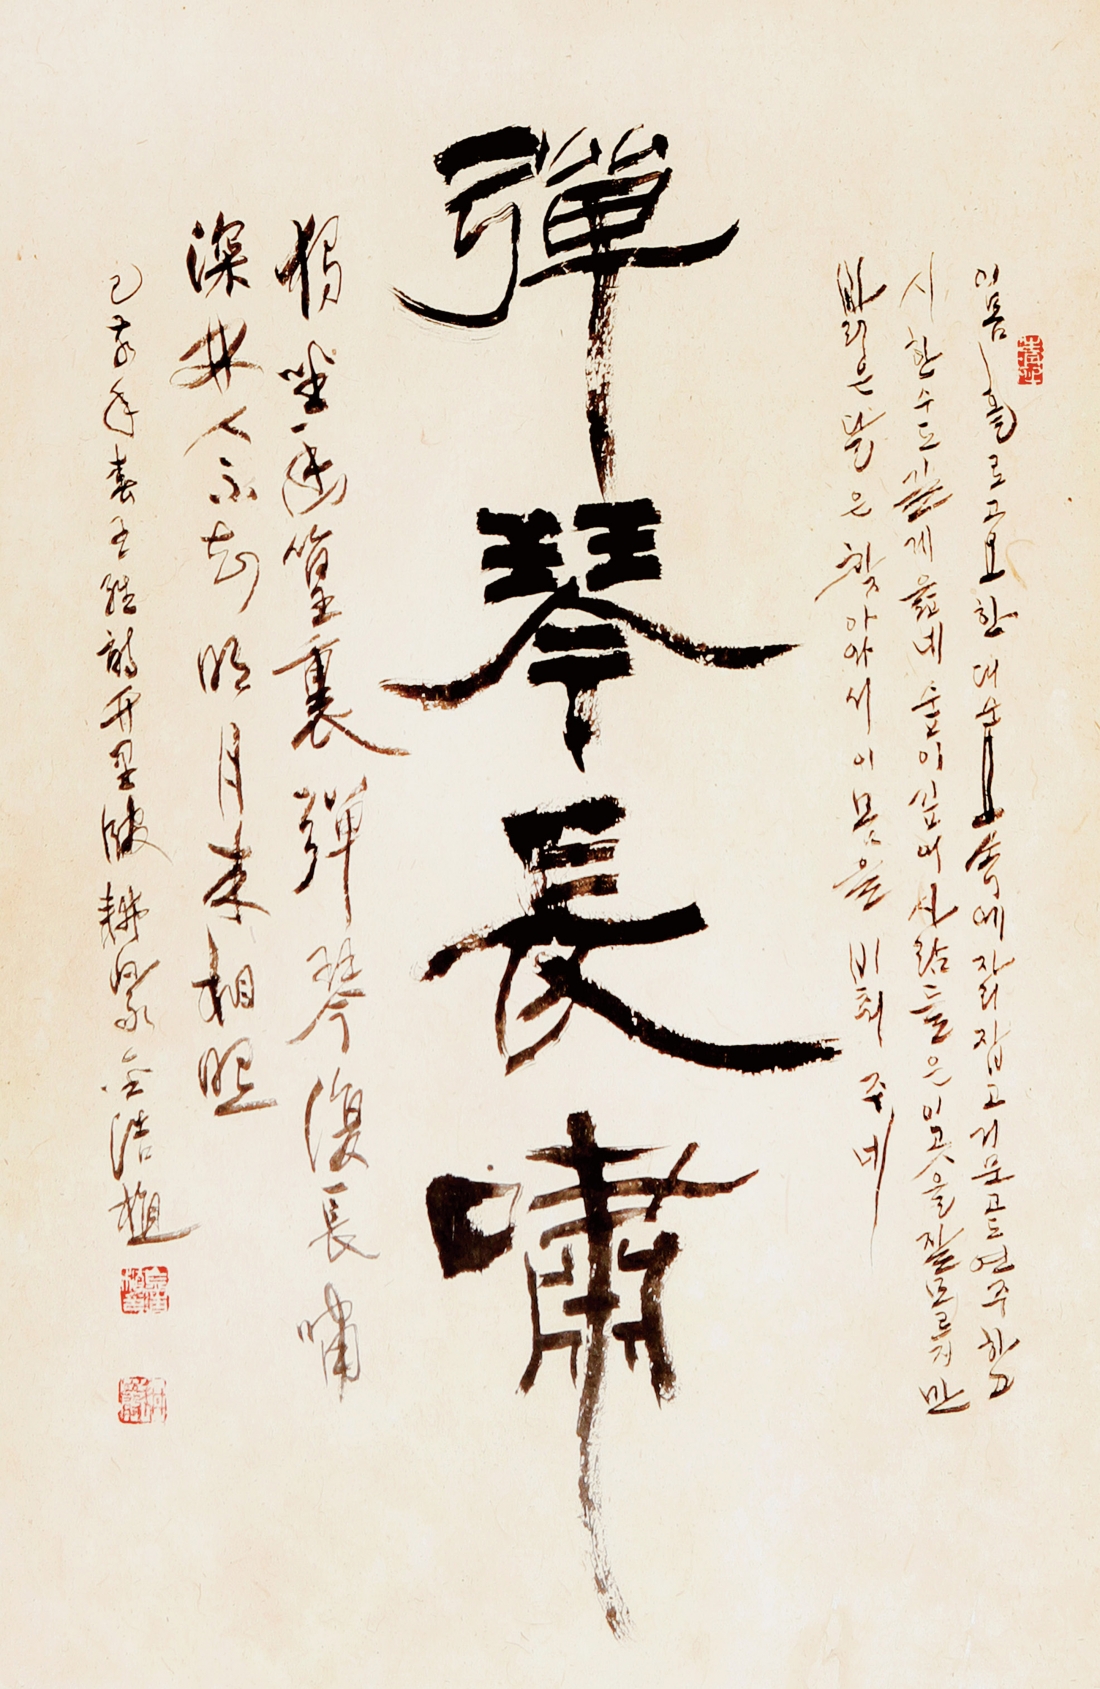 이몸 홀로 고요한 대숲 속에 자리잡고 거문고도 연주하고
시 한수도 길게 읊네 숲이 깊어 사람들은 이곳을 잘 모르지만
밝은 달은 찾아와서 이 몸을 비춰 주네
彈琴長嘯
獨坐幽篁裏彈琴復長嘯
深林人不知明月來相照
己亥年春王維詩 金浩植